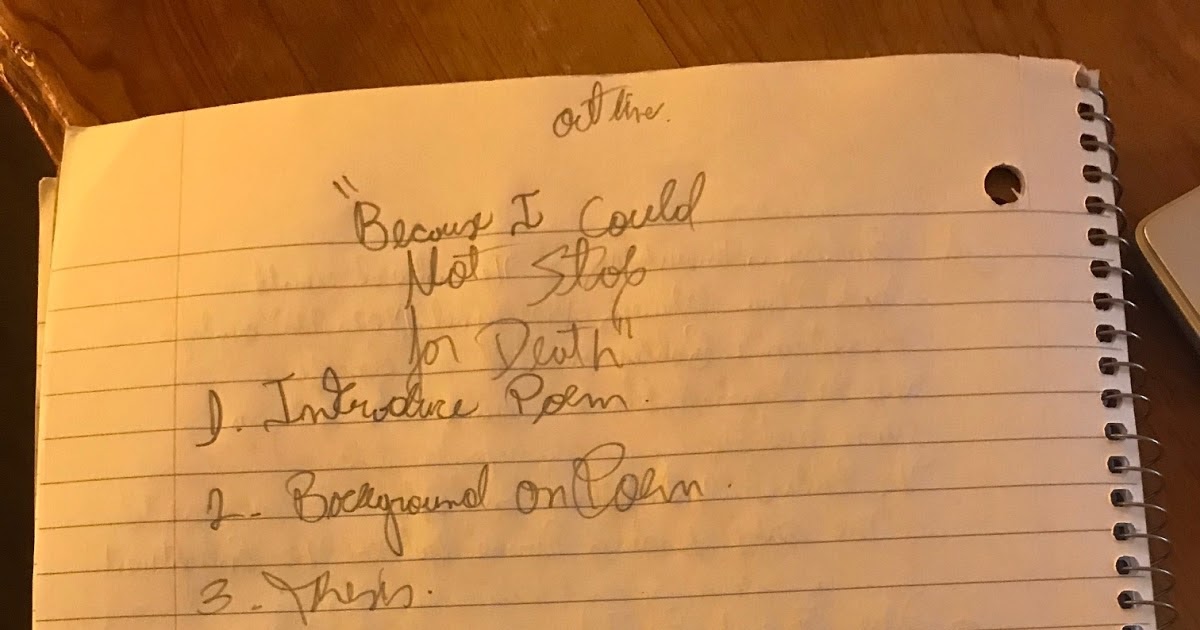 outline.
"Because I Could
Not Stop
for Death"
1. Introduce Poem.
2. Background on Poem.
3. Thesis.